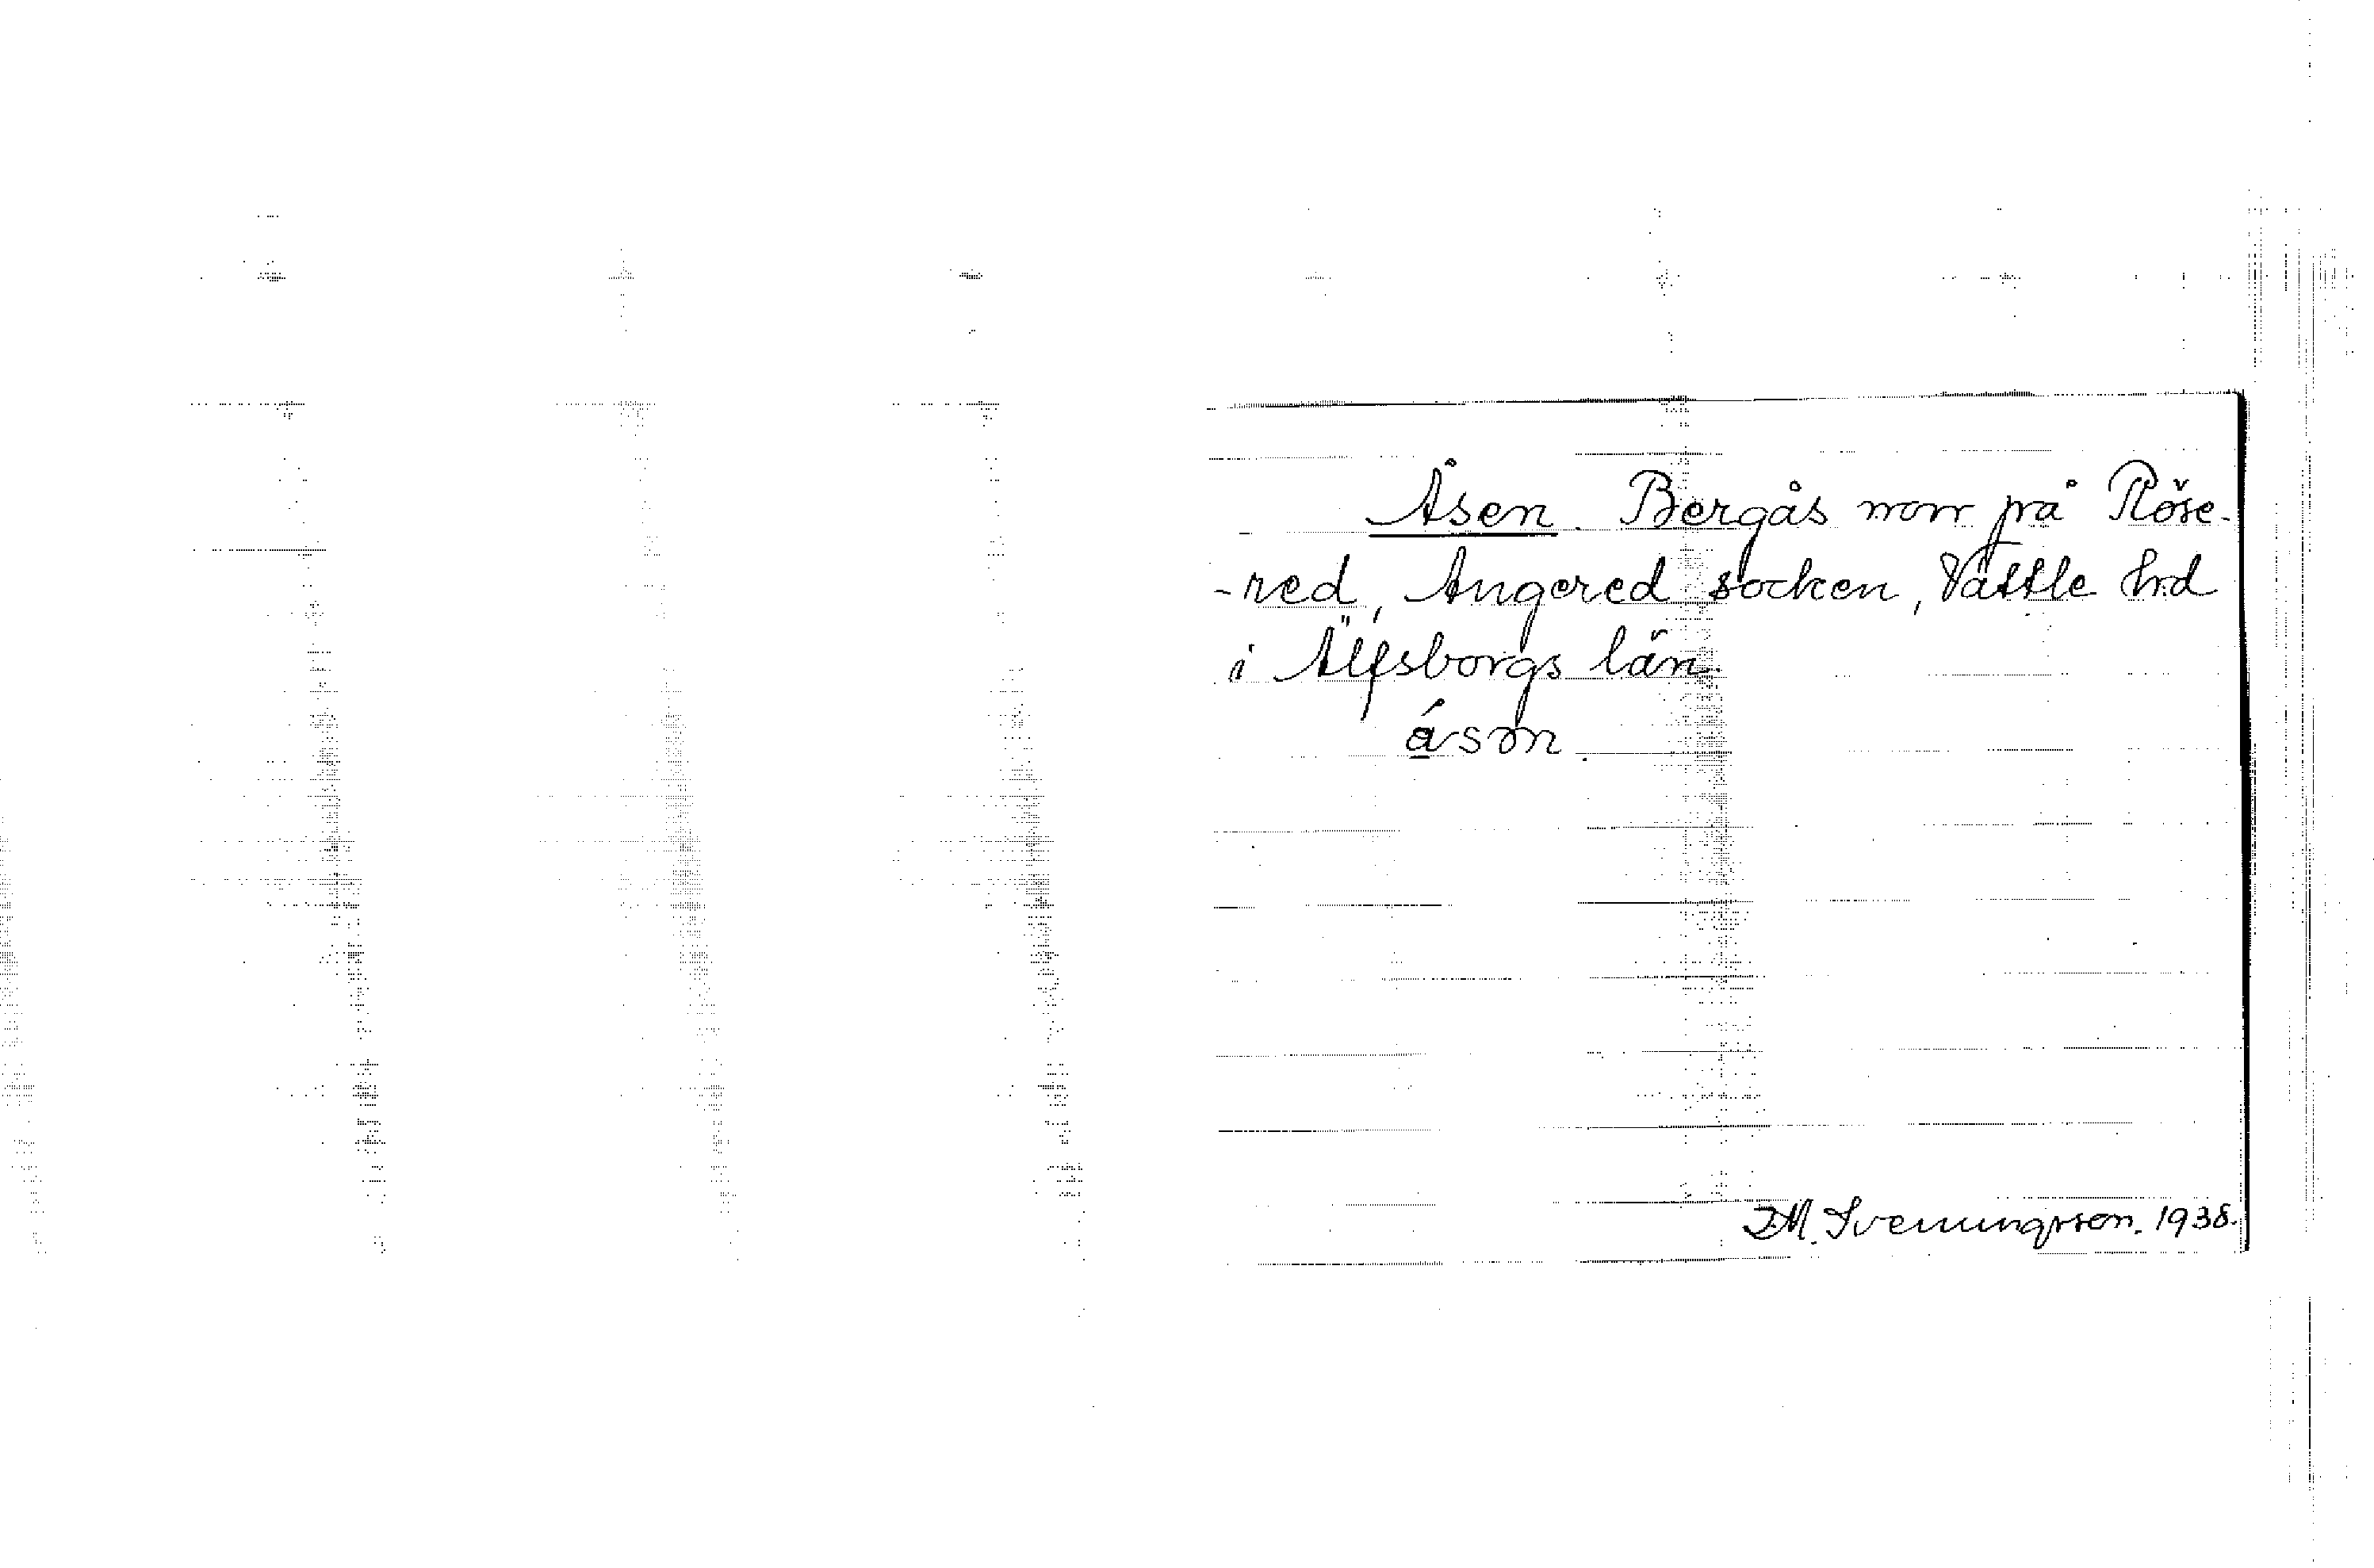 Åsen. Bergås norr på Röse-
-red, Angered socken, Vättle hrd
i Älfsborgs län.
åsøn.
IM. Svenungsson. 1938.